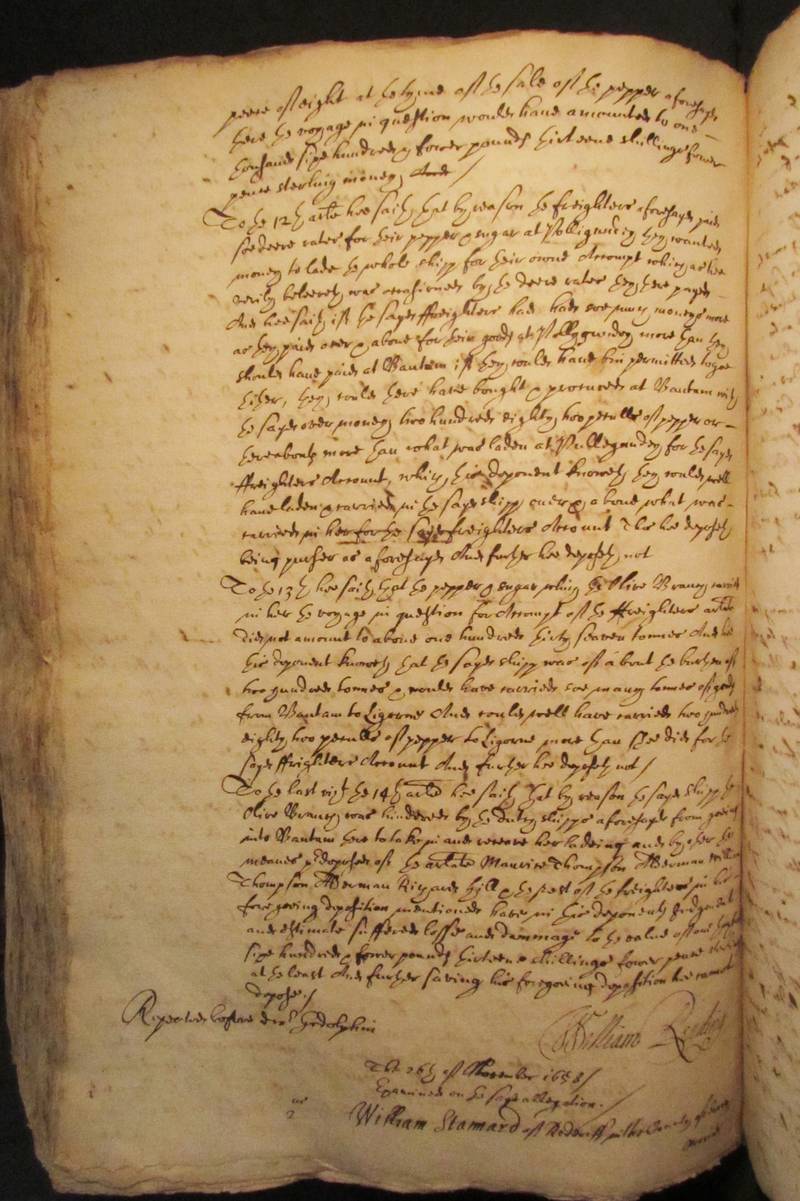 peece of eight at the tyme of the sale of the pepper aforesayd
there the voyage in question would have amounted to one
thousand sixe hundred & fower pounds thirteene shillings fower
pence sterling money /
To the 12th arle hee saith that by reason the freighters aforesayd paid
soe deere rates for their pepper & sugar at Pollegundy they wanted
money to lade the whole shipp for their owne Accompt which as hee
verily beleeveth was occasioned by the deere rates they there payed
And hee saith if the sayd ffreighters had had soe much moneys more
as they paied over & above for their goods at Pollygundey more than they
should have paied at Bantam if they could have bin permitted to goe
thither, they could there have bought & procured at Bantam with
the sayd over money, two hundred eighty two peculls of pepper or
thereabouts more than what was laden at Pullegundey for the sayd
ffreighters Accompt, which this deponent knoweth they could well
have laden & carried in the sayd shipp, over & above what was
carried in her for the sayd freighters Accompt This hee deposeth
being purser as aforesayd And further hee deposeth not
To the 13th hee saith that the pepper & sugar which the Olive Branch carried
in her the voyage in question for Accompt of the ffreighters arlate
did not amount to above one hundred thirty seaven tonnes And hee
this deponent knoweth that the sayd shipp was of about the burthen of
two hundred tonnes & would have carried soe many tonnes of goods
from Bantam to Ligorne And could well have carried two hundred
eighty two peculls of pepper to Ligorne more than shee did for the
sayd ffreighters Accompt And further hee deposeth not /
To the last vizt the 14th arle hee saith That by reason the sayd shipp the
Olive Branch was hindered by the Dutch shipps aforesayd from goeing
into Bantam there to take in and receave her ladeing and by other the
meanes predeposed of the arlate Maurice Thompson Alderman William
Thompson Alderman Richard Hill & the rest of the freighters in his
foregoeing deposition mentioned have in this deponents Judgment
and estimate suffered losse and dammage to the value of one thousand
sixe hundred & fower pounds thirteene shillings fower pence
at the least And further saving his foregoeing deposition hee cannot
depose /
Repeated before Godolphin
William
The 26th of November 1658 /
Examined on the sayd allegation. /
William Stannard of Redriff in the County of Surrey